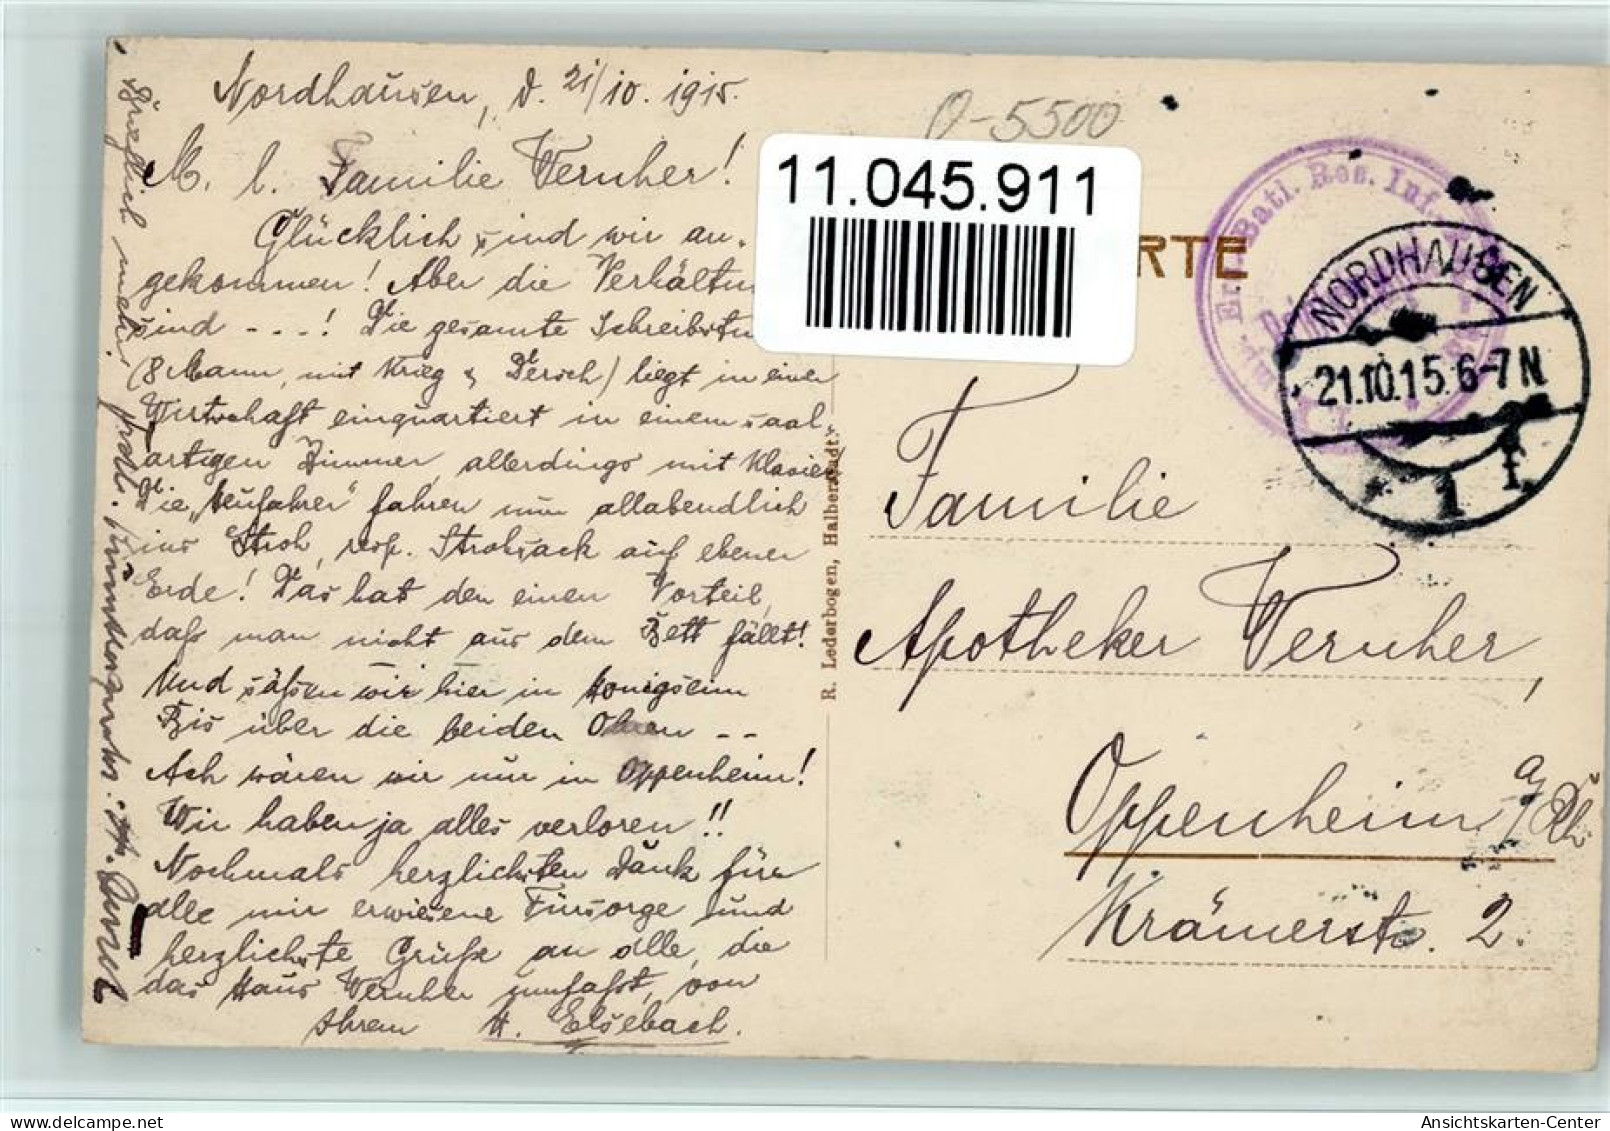 Nordhausen, d. 21/10. 1915.
M. l. Familie Vernher!
Glücklich sind wir an-
gekommen! Aber die Verhältn
sind - - - ! Die gesamte Schreibstu
(8 Mann, mit Krieg & Dersch) liegt in einer
Wirtschaft einquartiert in einem saal-
artigen Zimmer, allerdings mit Klavier
Die fahren nun allabendlich
ins Stroh, resp. Strohsack auf ebener
Erde! Das hat den einen Vorteil,
dass man nicht aus dem Bett fällt!
Und sässen wir hier in Honigseim
Bis über die beiden Ohren - -
Ach wären wir nur in Oppenheim!
Wir haben ja alles verloren!!
Nochmals herzlichsten Dank für
alle mir erwiesene Fürsorge und
herzlichste Grüße an alle, die
das Haus Vernher umfasst, von
Ihrem H. Elsebach.
Brieflich mehr
O-5500
11.045.911
RTE
Batl. Res. Inf.
NORDHAUSEN
21.10.15.6-7N
1 f
R. Lederbogen, Halberstadt.
Familie
Apotheker Vernher,
Oppenheim a/Rh.
Krämerstr. 2.
Ansichtskarten-Center